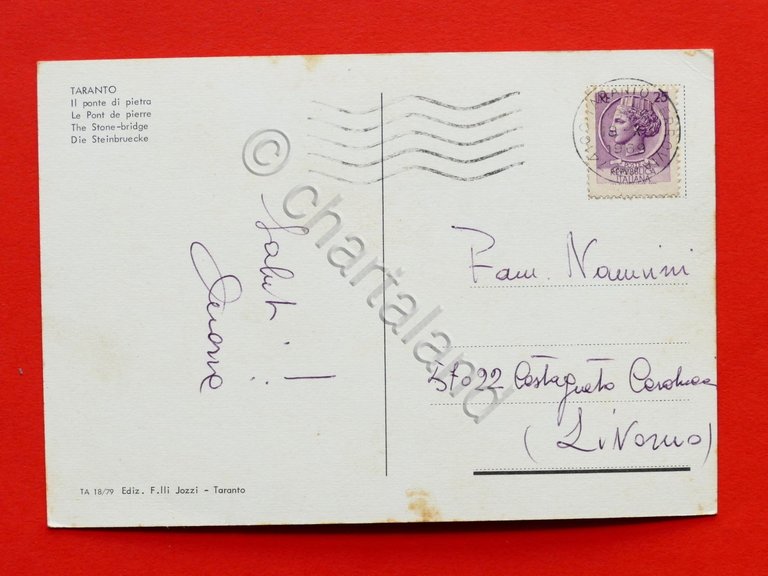 TARANTO
Il ponte di pietra
Le Pont de pierre
The Stone-bridge
Die Steinbruecke
25
POSTE
REPVBBLICA
ITALIANA
TARANTO
© chartaland
Saluti!
Fam. Nannini
57022 Castagneto Carducci
(Livorno)
TA 18/79 Ediz. F.lli Jozzi - Taranto